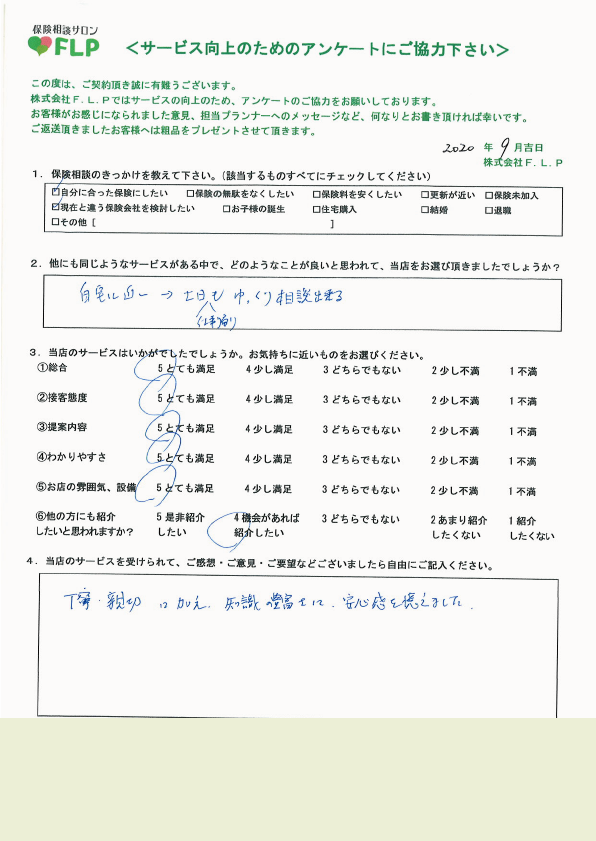 保険相談サロン
FLP
＜サービス向上のためのアンケートにご協力下さい＞
この度は、ご契約頂き誠に有難うございます。
株式会社Ｆ.Ｌ.Ｐではサービスの向上のため、アンケートのご協力をお願いしております。
お客様がお感じになられました意見、担当プランナーへのメッセージなど、何なりとお書き頂ければ幸いです。
ご返送頂きましたお客様へは粗品をプレゼントさせて頂きます。
2020 年 9 月吉日
株式会社Ｆ.Ｌ.Ｐ
１．保険相談のきっかけを教えて下さい。（該当するものすべてにチェックしてください）
☑自分に合った保険にしたい □保険の無駄をなくしたい □保険料を安くしたい □更新が近い □保険未加入
☑現在と違う保険会社を検討したい □お子様の誕生 □住宅購入 □結婚 □退職
□その他 [ ]
２．他にも同じようなサービスがある中で、どのようなことが良いと思われて、当店をお選び頂きましたでしょうか？
自宅に近い → 土日も ゆっくり相談出来る
仕事帰り
３．当店のサービスはいかがでしたでしょうか。お気持ちに近いものをお選びください。
①総合 5 とても満足 4 少し満足 3 どちらでもない 2 少し不満 1 不満
②接客態度 5 とても満足 4 少し満足 3 どちらでもない 2 少し不満 1 不満
③提案内容 5 とても満足 4 少し満足 3 どちらでもない 2 少し不満 1 不満
④わかりやすさ 5 とても満足 4 少し満足 3 どちらでもない 2 少し不満 1 不満
⑤お店の雰囲気、設備 5 とても満足 4 少し満足 3 どちらでもない 2 少し不満 1 不満
⑥他の方にも紹介 5 是非紹介 4 機会があれば 3 どちらでもない 2 あまり紹介 1 紹介
したいと思われますか？ したい 紹介したい したくない したくない
４．当店のサービスを受けられて、ご感想・ご意見・ご要望などございましたら自由にご記入ください。
丁寧・親切 に加え、知識の豊富さに、安心感を憶えました。